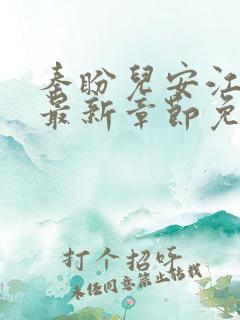 秦盼兒安江
最新章節免
打个招呼
未经同意禁止转载